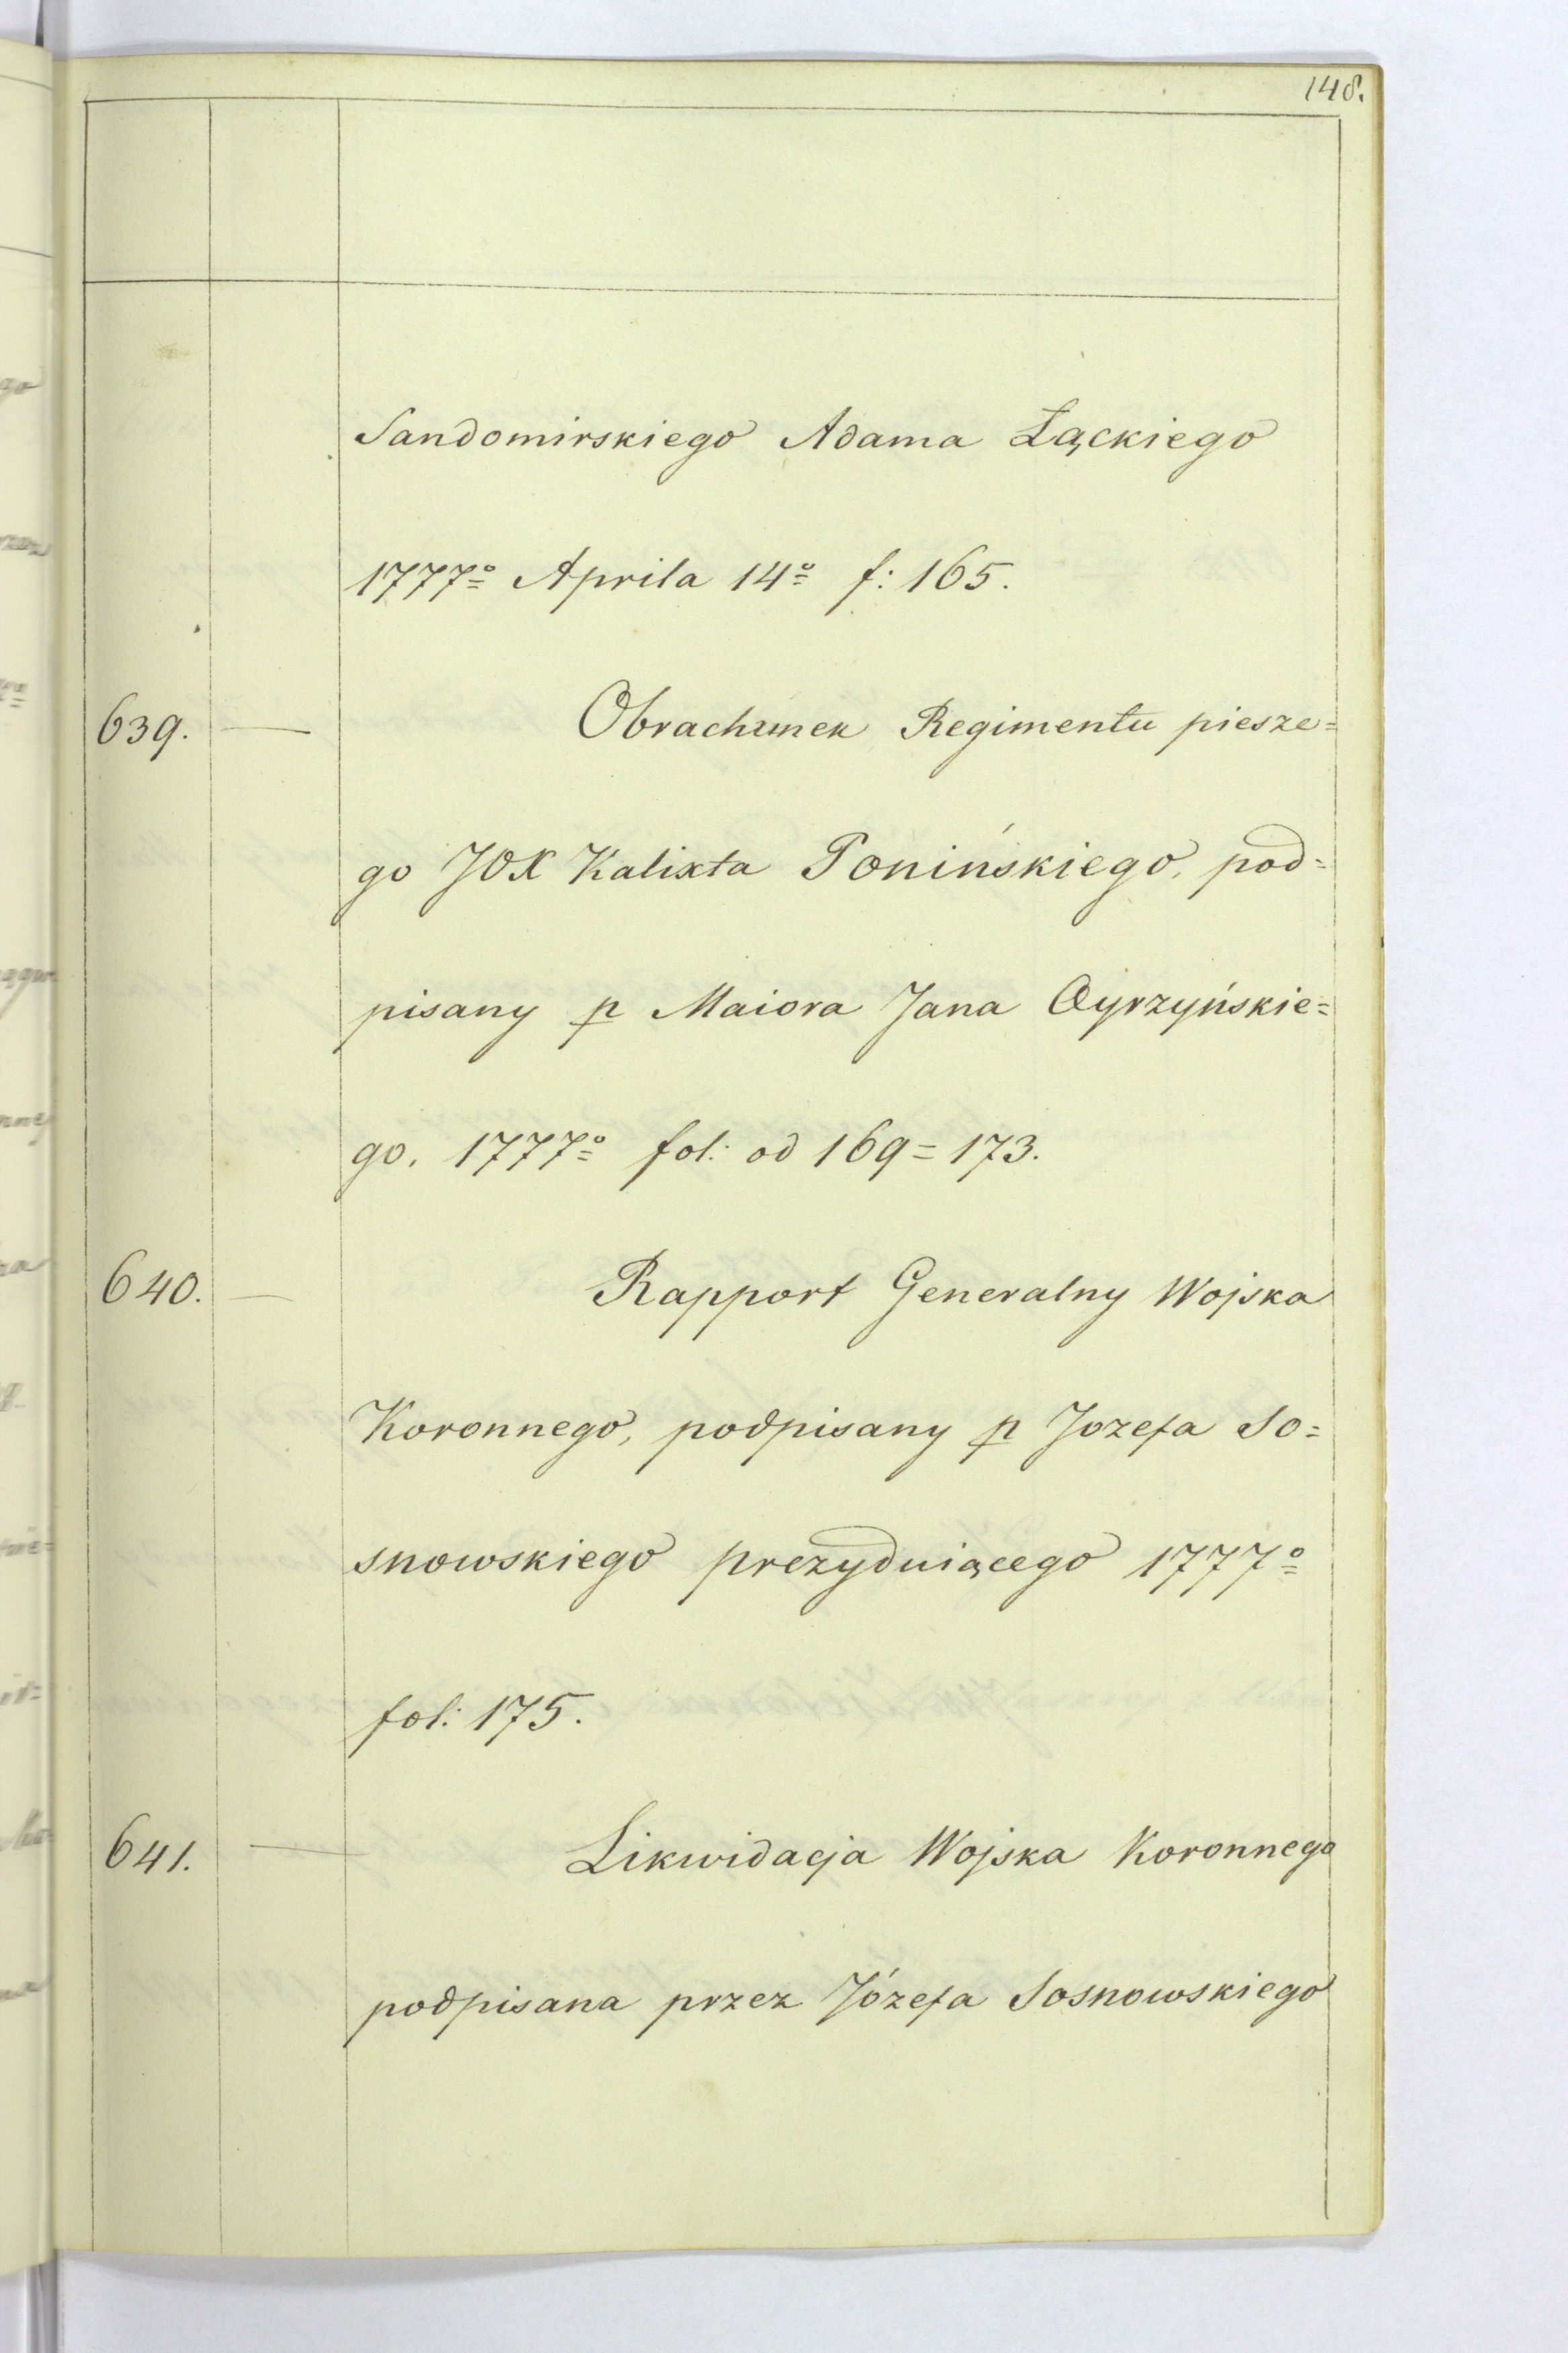 148.
Sandomirskiego Adama Łąckiego
1777º Aprila 14º f: 165.
639. — Obrachunek Regimentu piesze=
go JOX Kalixta Ponińskiego, pod=
pisany p Maiora Jana Oyrzyńskie=
go. 1777º fol: od 169=173.
640. — Rapport Generalny Wojska
Koronnego, podpisany p Jozefa So=
snowskiego prezyduiącego 1777º
fol: 175.
641. — Likwidacja Wojska Koronnego
podpisana przez Józefa Sosnowskiego